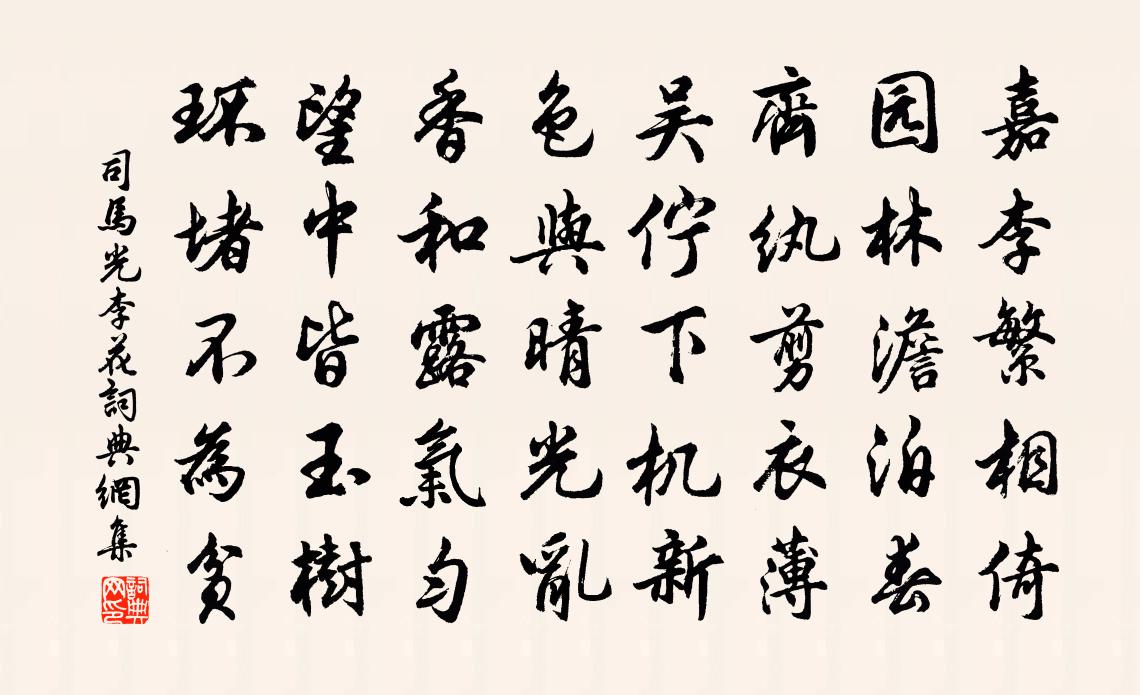 嘉李繁相倚
园林澹泊春
齊紈剪衣薄
吴佇下机新
色與晴光亂
香和露氣勻
望中皆玉樹
环堵不為貧
司馬光李花詞典網集
詞典网印